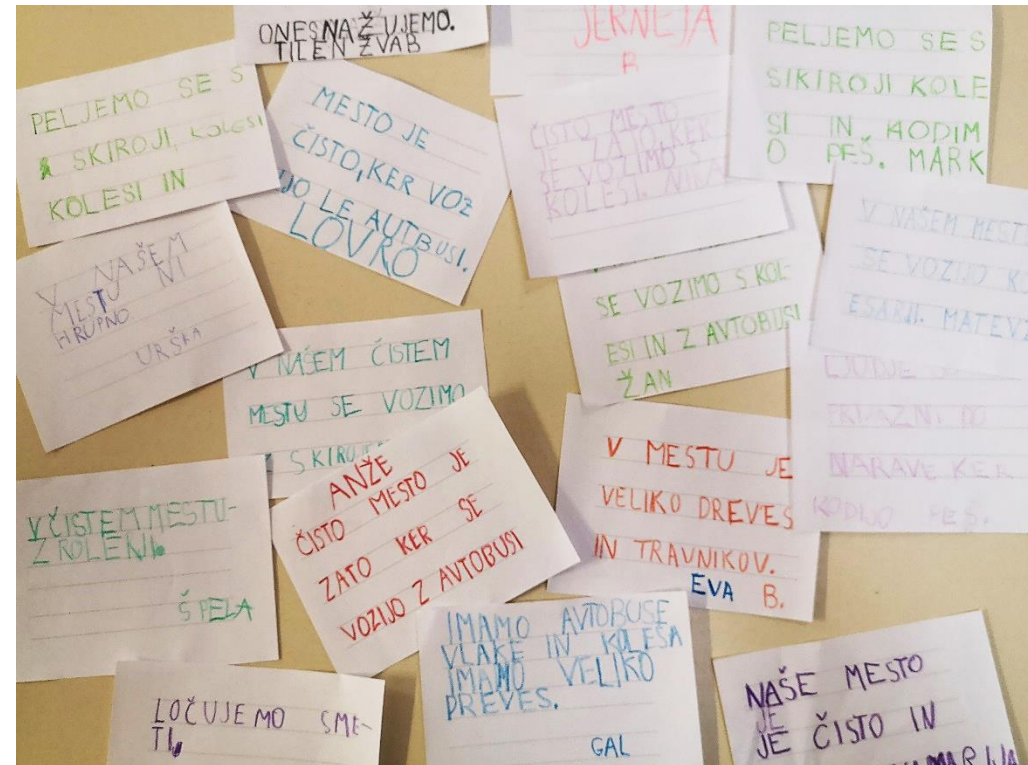 ONESNAŽUJEMO.
TILEN ŽVAB
JERNEJA
B
PELJEMO SE S
SIKIROJI KOLE
SI IN HODIM
O PEŠ. MARK
PELJEMO SE S
SKIROJI, KOLESI
KOLESI IN
MESTO JE
ČISTO, KER VOZ
JO LE AUTBUSI.
LOVRO
ČISTO MESTO
JE ZATO, KER
SE VOZIMO S
KOLESI. NIKA
V NAŠEM MEST
SE VOZIJO K
ESARJI. MATEV
V NAŠEM
MESTU NI
HRUPNO
URŠKA
SE VOZIMO S KOL-
ESI IN Z AVTOBUSI
ŽAN
V NAŠEM ČISTEM
MESTU SE VOZIMO
S SKIRO
LJUDJE
PRIJAZNI DO
NARAVE KER
HODIJO PEŠ.
ANŽE
ČISTO MESTO JE
ZATO KER SE
VOZIJO Z AVTOBUSI
V MESTU JE
VELIKO DREVES
IN TRAVNIKOV.
EVA B.
V ČISTEM MESTU-
Z ROLENI.
ŠPELA
IMAMO AVTOBUSE
VLAKE IN KOLESA
IMAMO VELIKO
PREVES.
GAL
LOČUJEMO SME-
TI.
NAŠE MESTO
JE
JE ČISTO IN
MARIJA